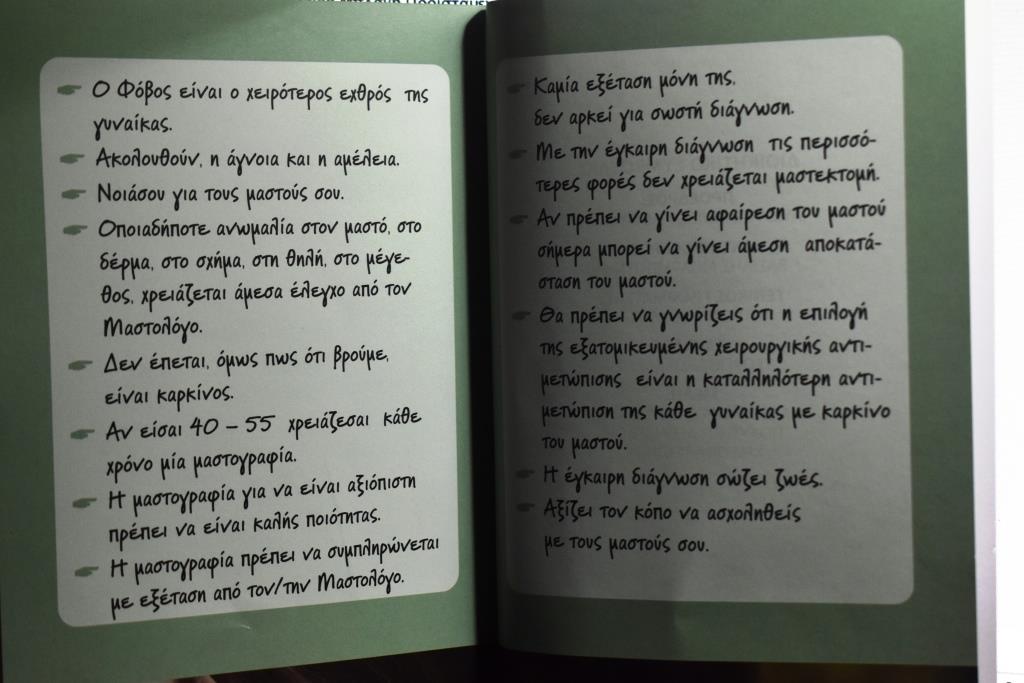 Ο Φόβος είναι ο χειρότερος εχθρός της
γυναίκας.
Ακολουθούν, η άγνοια και η αμέλεια.
Νοιάσου για τους μαστούς σου.
Οποιαδήποτε ανωμαλία στον μαστό, στο
δέρμα, στο σχήμα, στη θηλή, στο μέγε-
θος, χρειάζεται άμεσα έλεγχο από τον
Μαστολόγο.
Δεν έπεται, όμως πως ότι βρούμε,
είναι καρκίνος.
Αν είσαι 40 – 55 χρειάζεσαι κάθε
χρόνο μία μαστογραφία.
Η μαστογραφία για να είναι αξιόπιστη
πρέπει να είναι καλής ποιότητας.
Η μαστογραφία πρέπει να συμπληρώνεται
με εξέταση από τον/την Μαστολόγο.
Καμία εξέταση μόνη της,
δεν αρκεί για σωστή διάγνωση.
Με την έγκαιρη διάγνωση τις περισσό-
τερες φορές δεν χρειάζεται μαστεκτομή.
Αν πρέπει να γίνει αφαίρεση του μαστού
σήμερα μπορεί να γίνει άμεση αποκατά-
σταση του μαστού.
Θα πρέπει να γνωρίζεις ότι η επιλογή
της εξατομικευμένης χειρουργικής αντι-
μετώπισης είναι η καταλληλότερη αντι-
μετώπιση της κάθε γυναίκας με καρκίνο
του μαστού.
Η έγκαιρη διάγνωση σώζει ζωές.
Αξίζει τον κόπο να ασχοληθείς
με τους μαστούς σου.